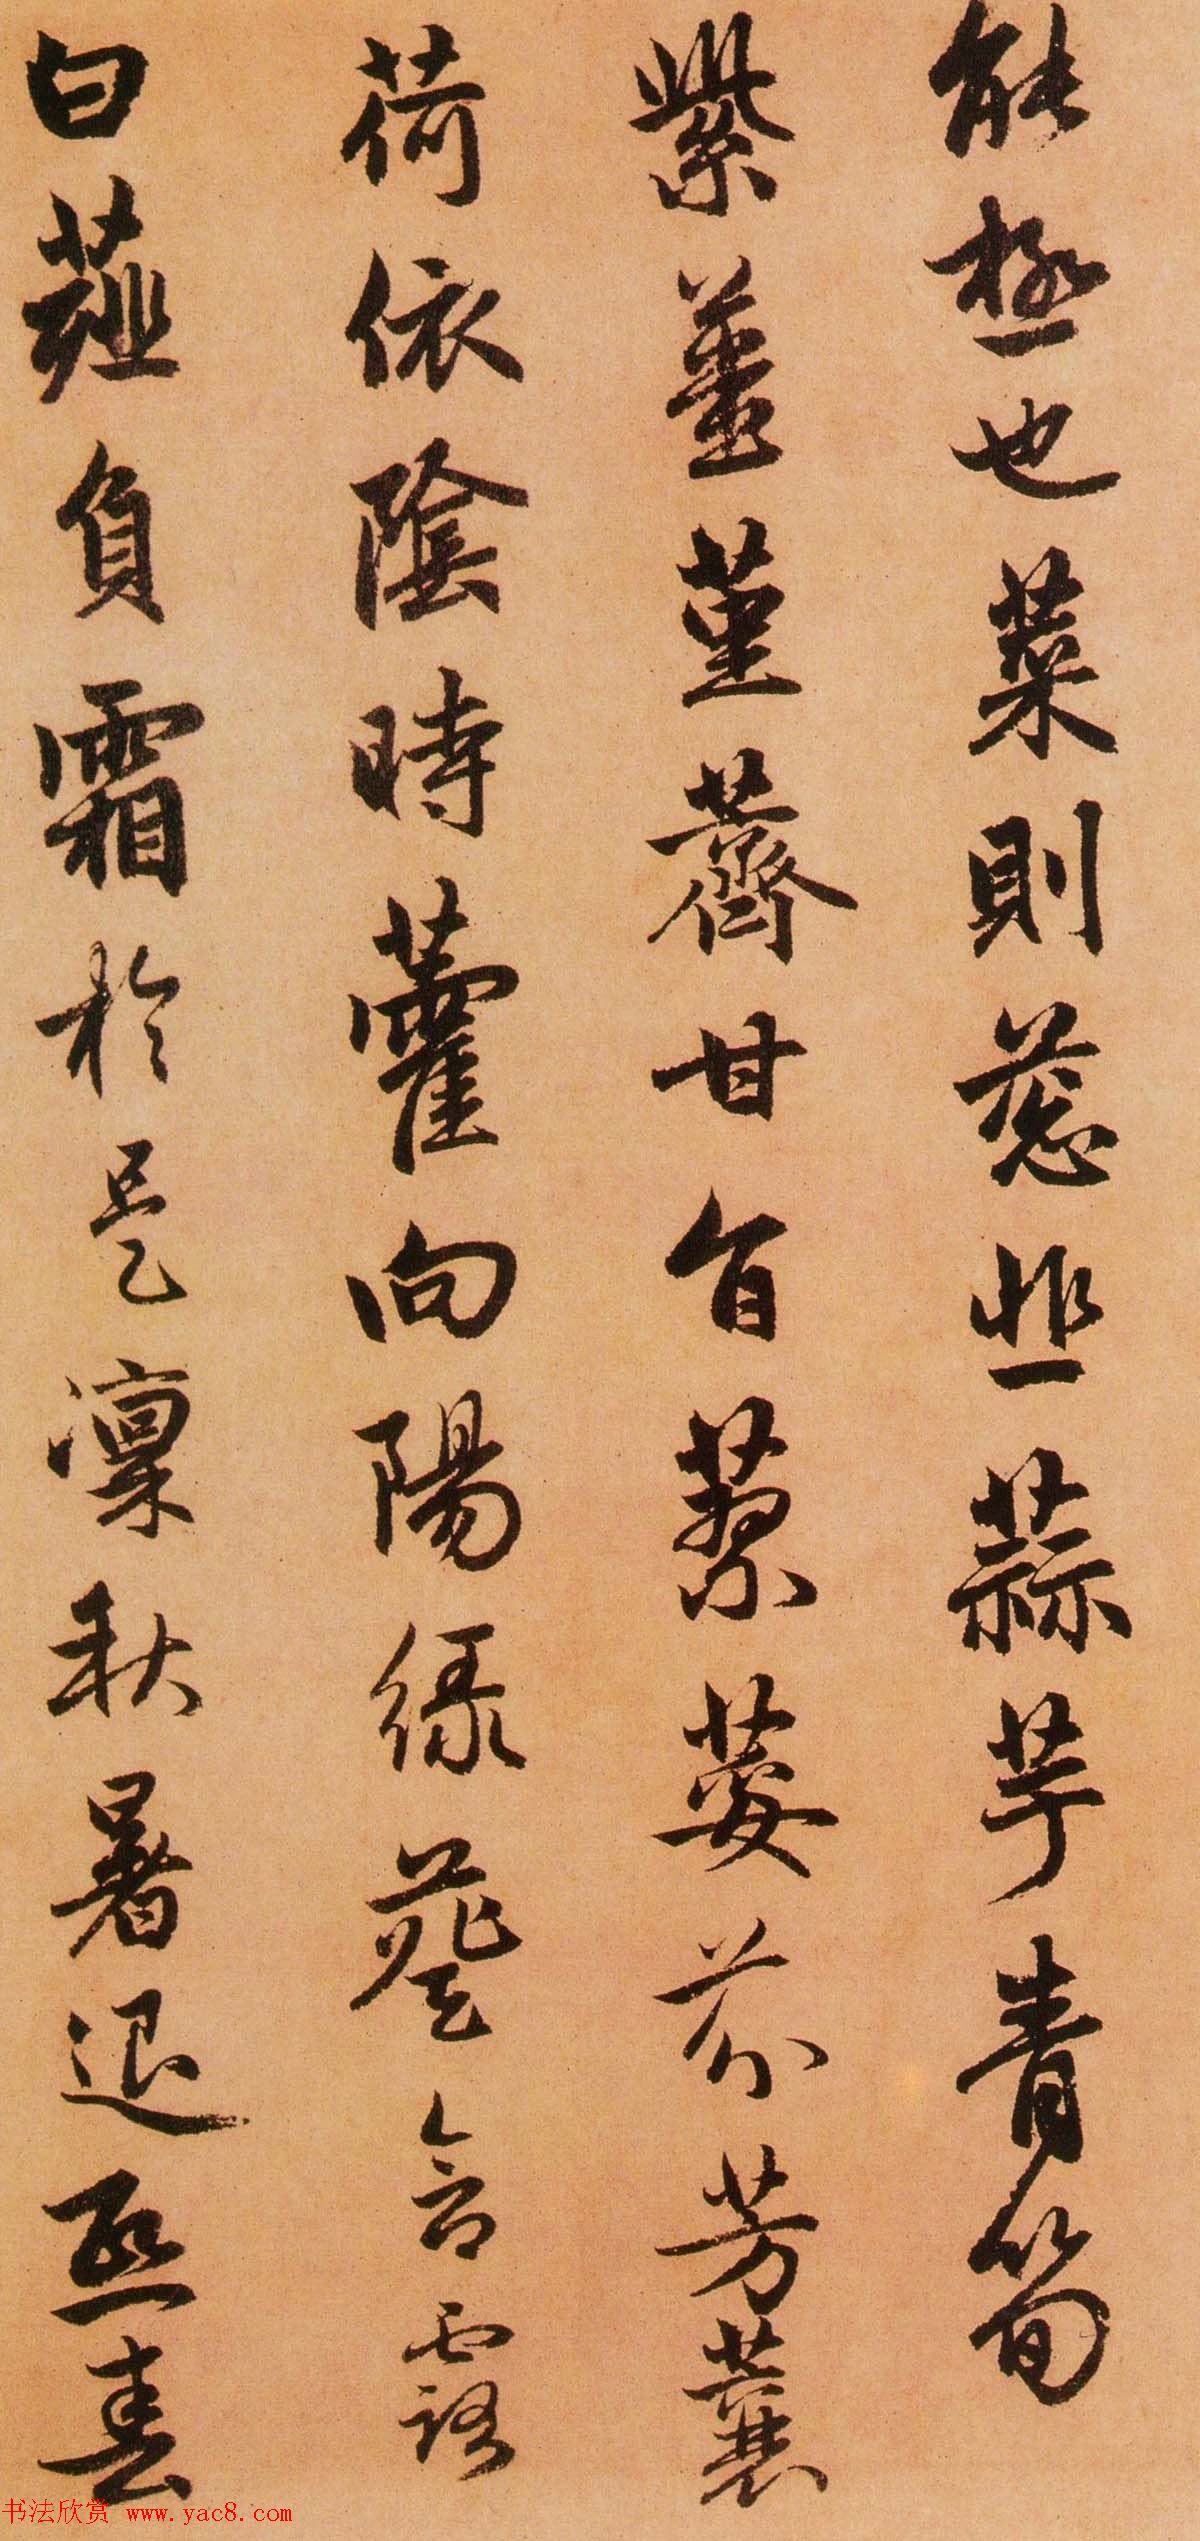 能極也菜則葱韭蒜芋青筍
紫薑菫薺甘旨蓼荽芬芳蘘
荷依陰時藿向陽綠葵含露
白薤負霜於是凜秋暑退熙春
书法欣赏 www.yac8.com